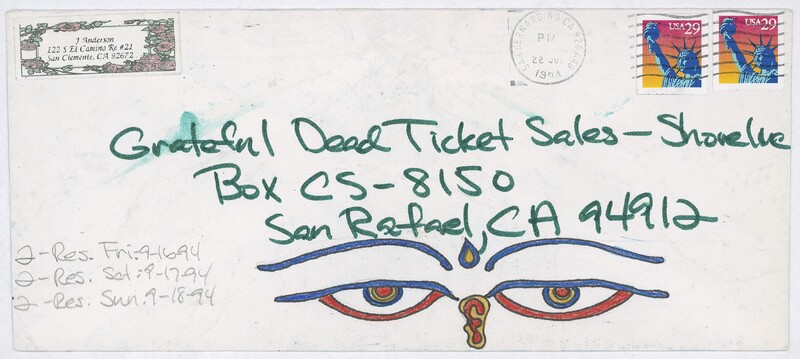 J Anderson
122 S El Camino Re #21
San Clemente, CA 92672
SAN BERNARDINO CA 924
PM
22 JUL
1994
USA 29
USA 29
Grateful Dead Ticket Sales - Shoreline
Box CS-8150
San Rafael, CA 94912
2-Res. Fri: 9-16-94
2-Res. Sat: 9-17-94
2-Res. Sun: 9-18-94